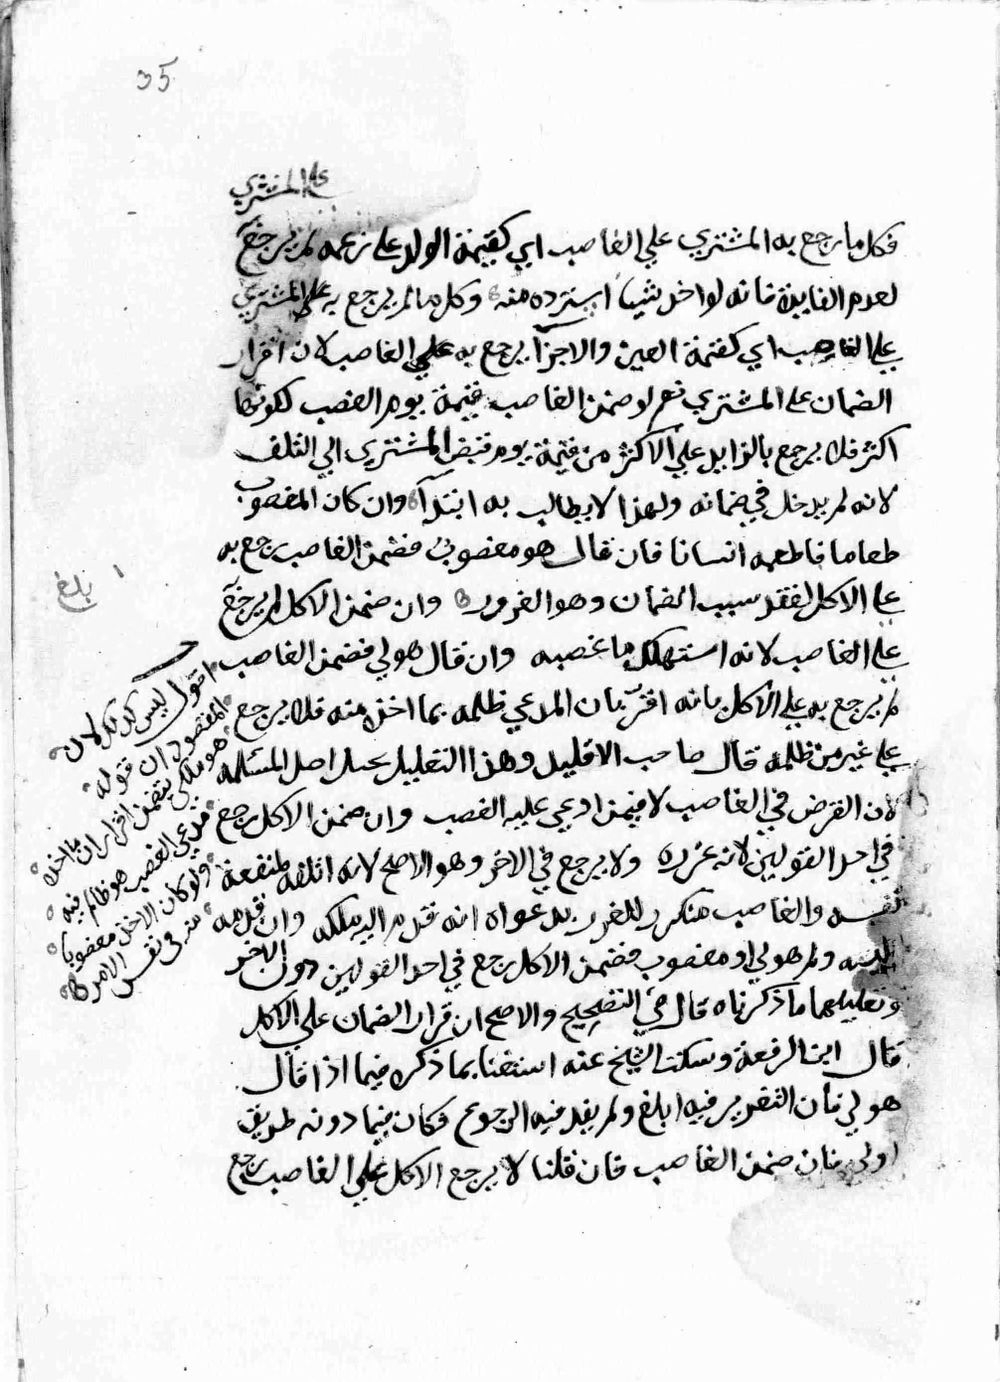 35
على المشتري
فكل ما رجع به المشتري علي الغاصب اي كقيمة الولد على زعمه لم يرجع
لعدم الفايدة فانه لو اخذ شيا استرده منه وكل ما لم يرجع به على المشتري
على الغاصب اي كقيمة العين والاجزآ يرجع به علي الغاصب لان اقرار
الضمان على المشتري نعم لو ضمن الغاصب قيمة يوم الغصب لكونها
اكثر فلا يرجع بالزايد علي الاكثر من قيمة يوم قبض المشتري الي التلف
لانه لم يدخل في ضمانه ولهذا لا يطالب به ابتدآ وان كان المغصوب
طعاما فاطعمه انسانا فان قال هو مغصوب فضمن الغاصب رجع به
على الاكل لفقد سبب الضمان وهو الغرور وان ضمن الاكل لم يرجع
على الغاصب لانه استهلك ما غصبه وان قال هو لي فضمن الغاصب
لم يرجع به علي الاكل بانه اقر بان المدعي ظلمه بما اخذ منه فلا يرجع
على غير من ظلمه قال صاحب الاقليد وهذا التعليل يحيل اصل المسئلة
لان الفرض في الغاصب لا فيمن ادعي عليه الغصب وان ضمن الاكل رجع
في احد القولين لانه غره ولا يرجع في الاخر وهو الاصح لانه اتلفه لمنفعة
نفسه والغاصب منكر للغرر بدعواه انه قدم اليه ملكه وان قدمه
اليه ولم هو لي او مغصوب فضمن الاكل رجع في احد القولين دون الاخر
وتعليلهما ما ذكرناه قال في التصحيح والاصح ان قرار الضمان علي الاكل
قال ابن الرفعة وسكت الشيخ عنه استغنا بما ذكره فيما اذا قال
هو لي فان التغرير فيه ابلغ ولم يفد فيه الرجوع فكان فيما دونه طريق
اولي فان ضمن الغاصب فان قلنا لا يرجع الاكل علي الغاصب رجع
بلغ
اقول ليس كذلك لان
المقصود ان قوله
هو ملكي يتضمن اقراران ما اخذه
مدعي الغصب هو ظالم فيه
ولو كان الاخذ مغصوبا
منه في نفس الامر